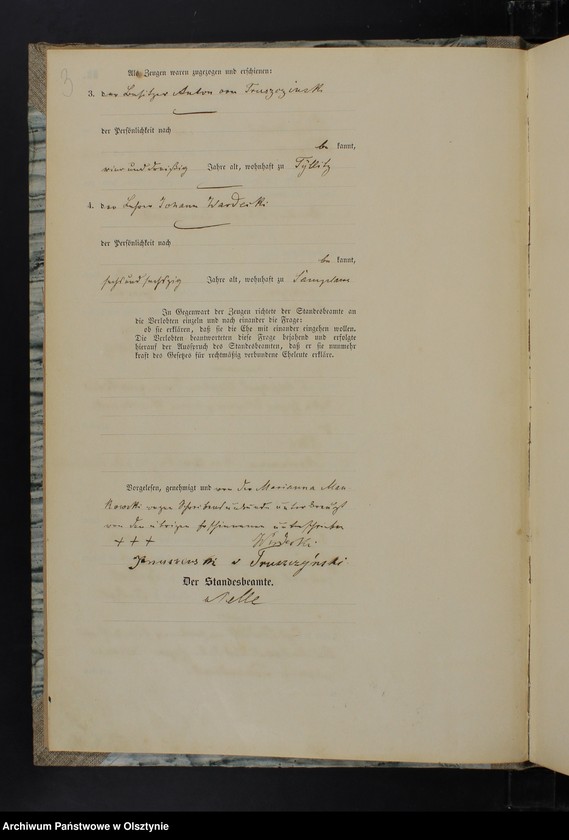 3
Als Zeugen waren zugezogen und erschienen:
3. der Besitzer Anton von Truszczinski
der Persönlichkeit nach
be kannt,
vier und dreißig Jahre alt, wohnhaft zu Tyllitz
4. der Lehrer Johann Wardecki
der Persönlichkeit nach
be kannt,
sechs und sechszig Jahre alt, wohnhaft zu Samplau
In Gegenwart der Zeugen richtete der Standesbeamte an
die Verlobten einzeln und nach einander die Frage:
ob sie erklären, daß sie die Ehe mit einander eingehen wollen.
Die Verlobten beantworteten diese Frage bejahend und erfolgte
hierauf der Ausspruch des Standesbeamten, daß er sie nunmehr
kraft des Gesetzes für rechtmäßig verbundene Eheleute erkläre.
Vorgelesen, genehmigt und von der Marianna Man-
kowski wegen Schreibens unkunde unterkreuzt
von den übrigen Erschienenen unterschrieben
+ + +
v Truszczyński
Der Standesbeamte.
Nelle
Archiwum Państwowe w Olsztynie